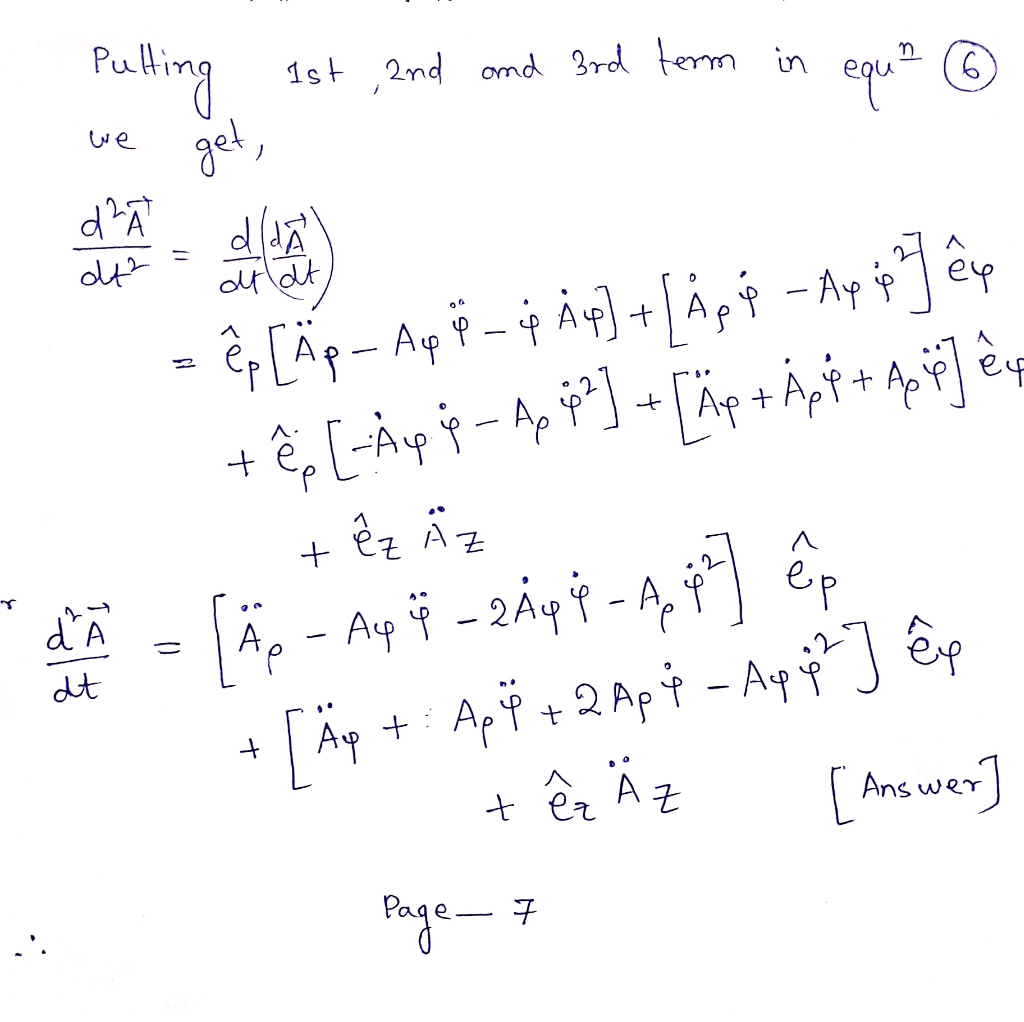 Putting 1st, 2nd and 3rd term in equⁿ ⑥
we get,
d²A⃗/dt² = d/dt(dA⃗/dt)
= ê_ρ[Ä_ρ − A_φ φ̈ − φ̇ Ȧ_φ] + [Ȧ_ρ φ̇ − A_φ φ̇²] ê_φ
+ ê_ρ[−Ȧ_φ φ̇ − A_ρ φ̇²] + [Ä_φ + Ȧ_ρ φ̇ + A_ρ φ̈] ê_φ
+ ê_z Ä_z
d²A⃗/dt = [Ä_ρ − A_φ φ̈ − 2Ȧ_φ φ̇ − A_ρ φ̇²] ê_ρ
+ [Ä_φ + A_ρ φ̈ + 2A_ρ φ̇ − A_φ φ̇²] ê_φ
+ ê_z Ä_z [Answer]
Page — 7
∴